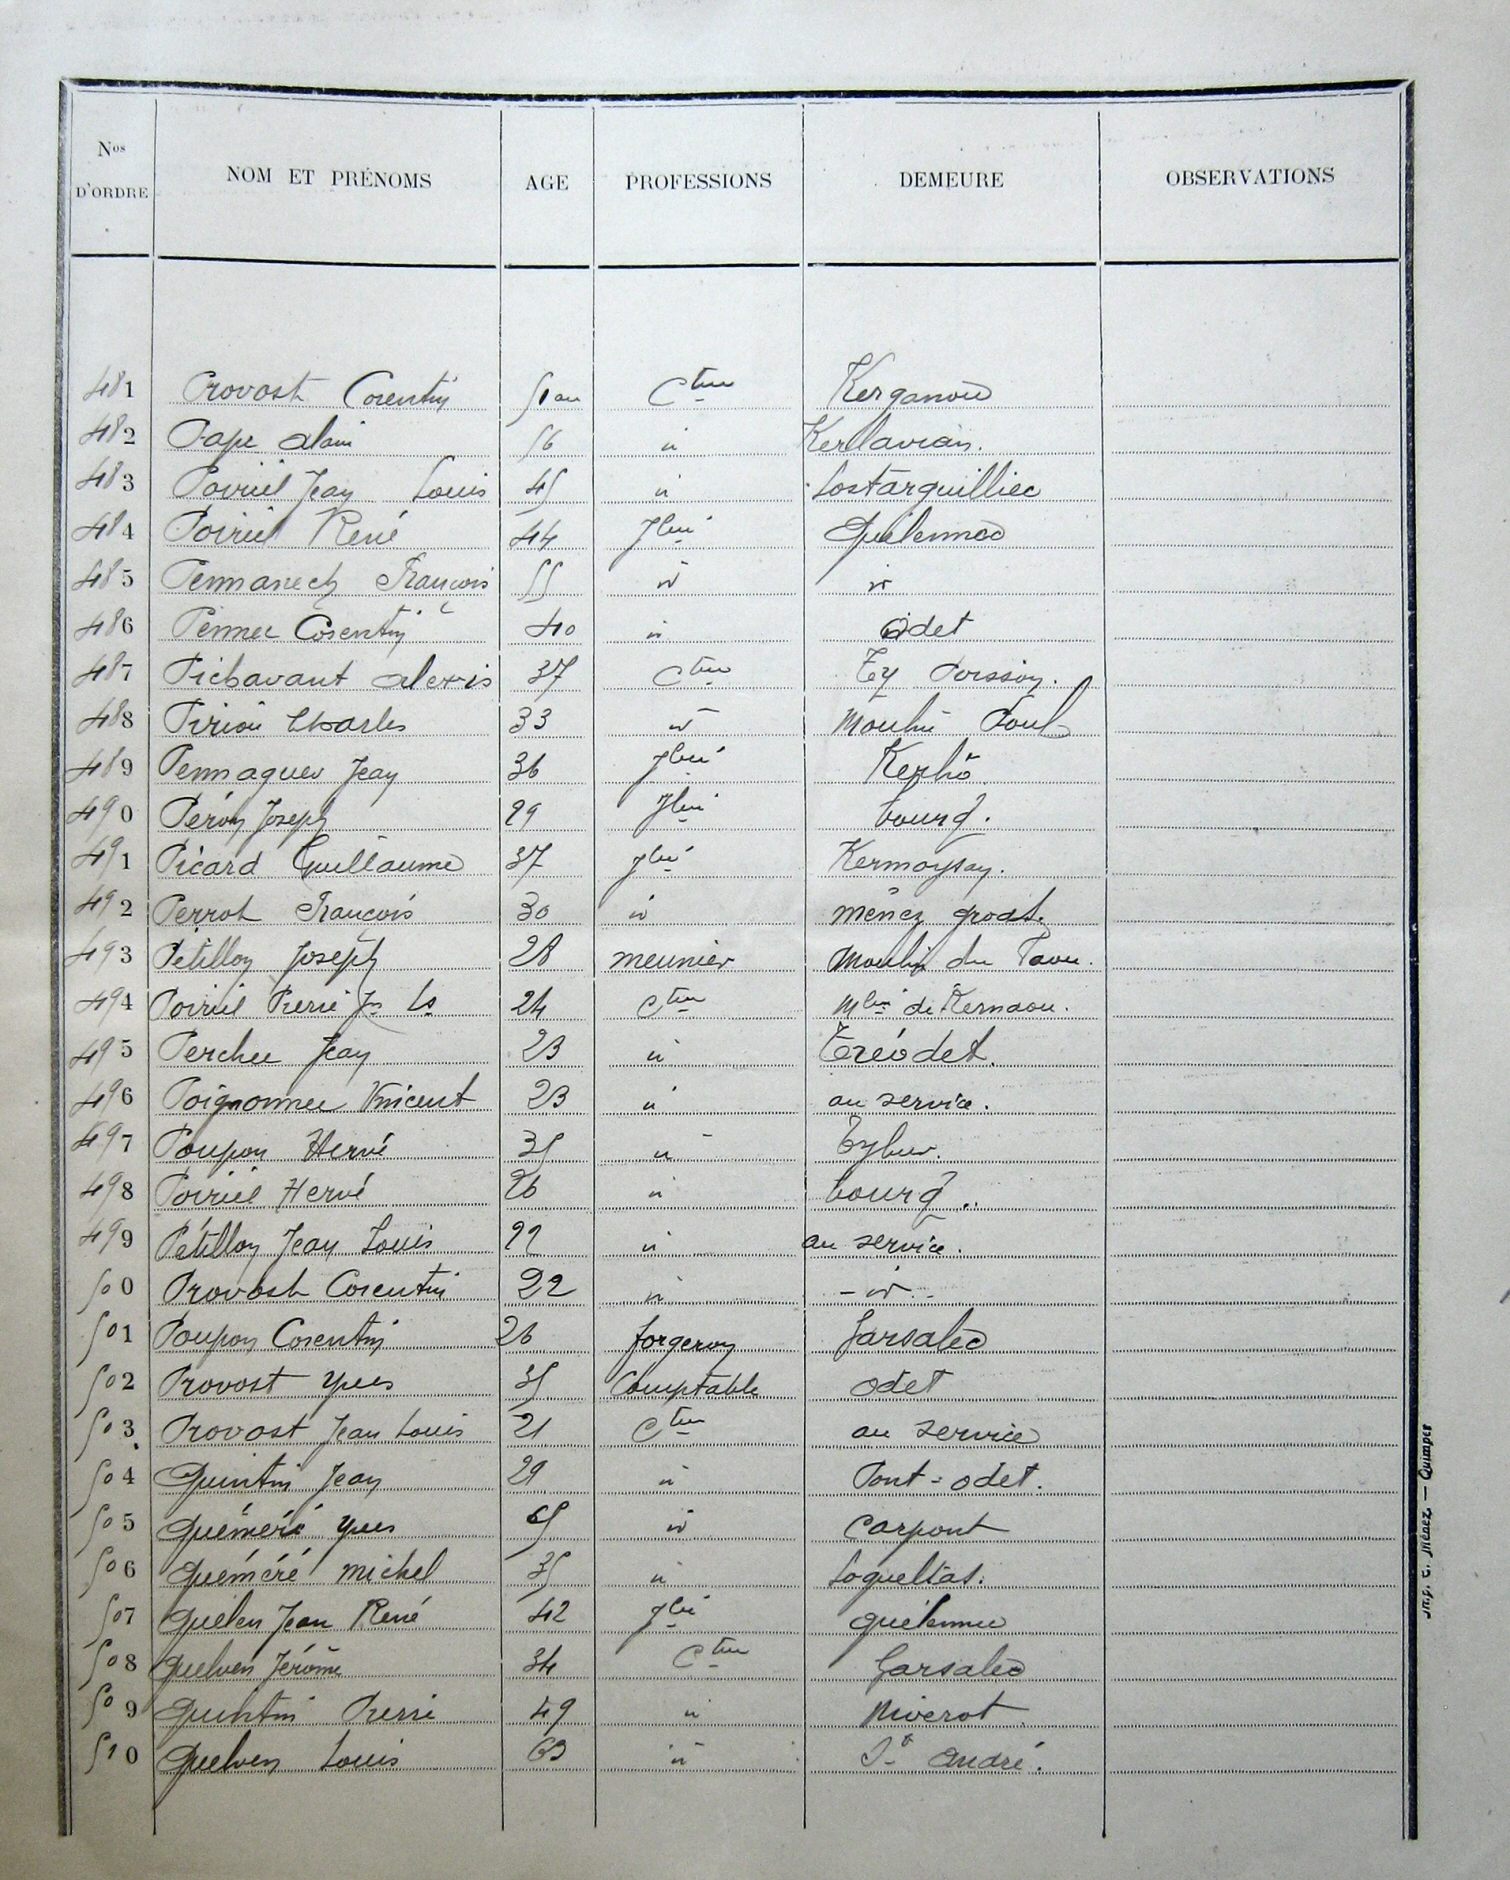 Nos D'ORDRE NOM ET PRÉNOMS AGE PROFESSIONS DEMEURE OBSERVATIONS
481 Provost Corentin 51 an Cteur Kerganou
482 Pape Alain 56 id Kerlavian.
483 Poiriel Jean Louis 45 id Lostarguilliec
484 Poiriel René 44 Jlier Quélennec
485 Pennanech François 55 id id
486 Pennec Corentin 40 id Odet
487 Pichavant Alexis 37 Cteur Ty Poisson.
488 Piriou Charles 33 id Moulin Poul
489 Pennaguer Jean 36 Jlier Kerho
490 Péron Joseph 29 Jlier bourg.
491 Picard Guillaume 37 Jlier Kermoysan.
492 Perrot François 30 id Ménez groas.
493 Pétillon Joseph 28 meunier Moulin du
494 Poiriel Pierre Jn Ls 24 Cteur Mlin de Kernaou.
495 Perchec Jean 23 id Tréodet.
496 Poignonnec Vincent 23 id au service.
497 Poupon Hervé 35 id
498 Poiriel Hervé 26 id bourg.
499 Pétillon Jean Louis 22 id au service.
500 Provost Corentin 22 id - id -
501 Poupon Corentin 26 forgeron Garsalec
502 Provost Yves 35 Comptable Odet
503 Provost Jean Louis 21 Cteur au service
504 Quintin Jean 29 id Pont-Odet.
505 Quéméré Yves 65 id Carpont
506 Quéméré Michel 35 id Loqueltas.
507 Quélen Jean René 42 Jlier Quélennec
508 Quelven Jérôme 34 Cteur Garsalec
509 Quintin Pierre 49 id Niverot
510 Quelven Louis 63 id St André.
Imp. C. Ménez — Quimper